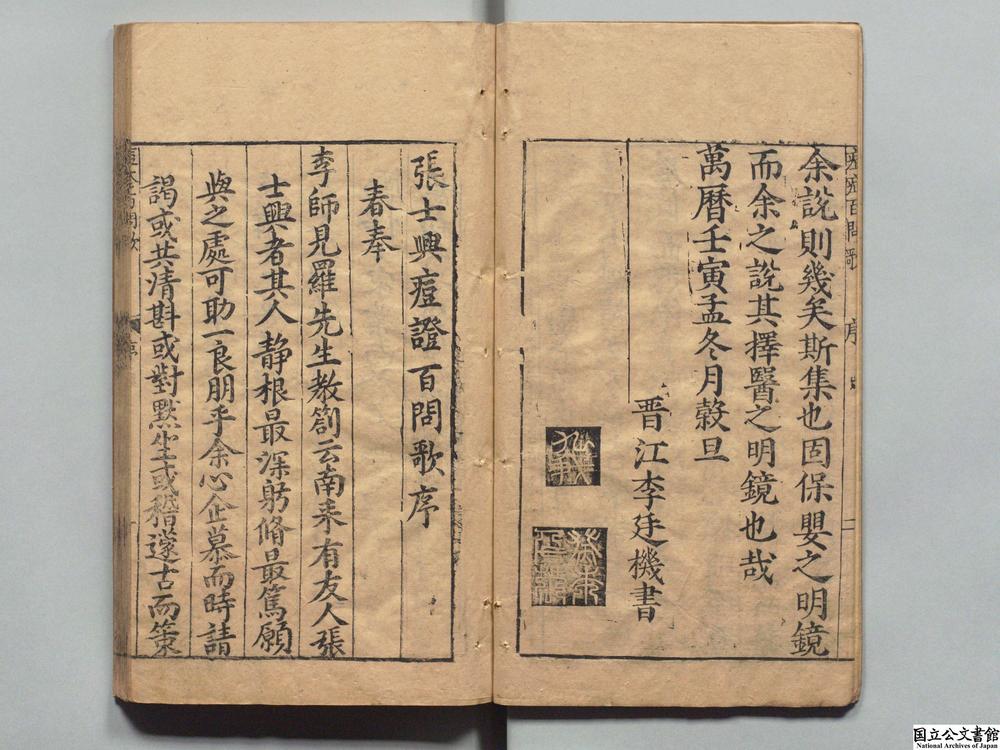 余說則幾矣斯集也固保嬰之明鏡
而余之說其擇醫之明鏡也哉
萬曆壬寅孟冬月穀旦
晋江李廷機書
張士興痘證百問歌序
春奉
李師見羅先生教劄云南来有友人張
士興者其人静根最深躬脩最篤願
與之處可助一良朋乎余心企慕而時請
謁或共清斟或對默坐或稽邃古而策
百問歌 序
百問歌 序
国立公文書館
National Archives of Japan